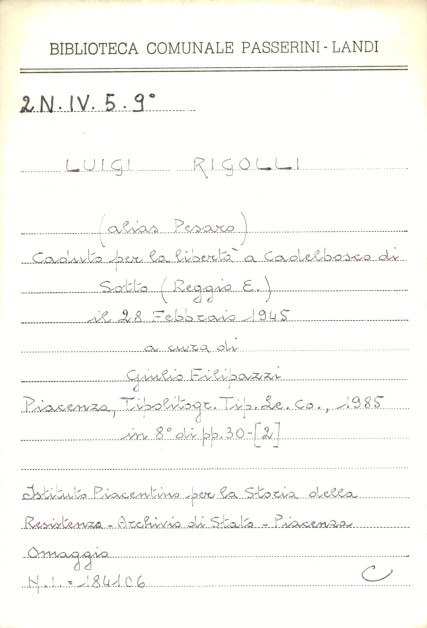 BIBLIOTECA COMUNALE PASSERINI - LANDI
2N. IV. 5. 9°
LUIGI RIGOLLI
(alias Pesaro)
Caduto per la libertà a Cadelbosco di
Sotto (Reggio E.)
il 28 Febbraio 1945
a cura di
Giulio Filipazzi
Piacenza, Tipolitogr. Tip. Le. Co., 1985
in 8° di pp. 30-[2]
Istituto Piacentino per la Storia della
Resistenza - Archivio di Stato - Piacenza
Omaggio
N. I. = 184106
C